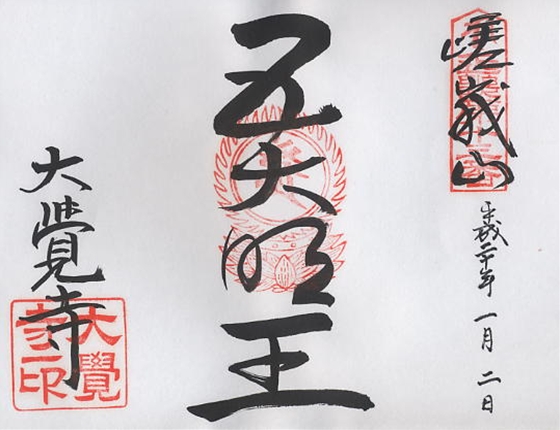 嵯峨山
平成二十年 一月 二日
五大明王
大覺寺
大覺寺印